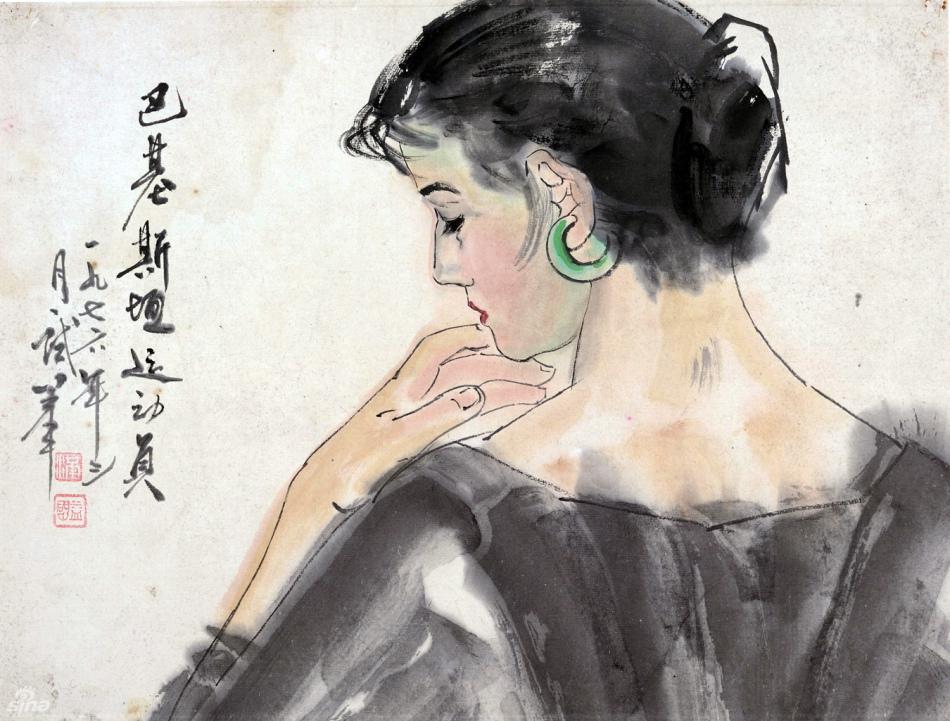 巴基斯坦运动员
一九七六年三
月试笔
sina